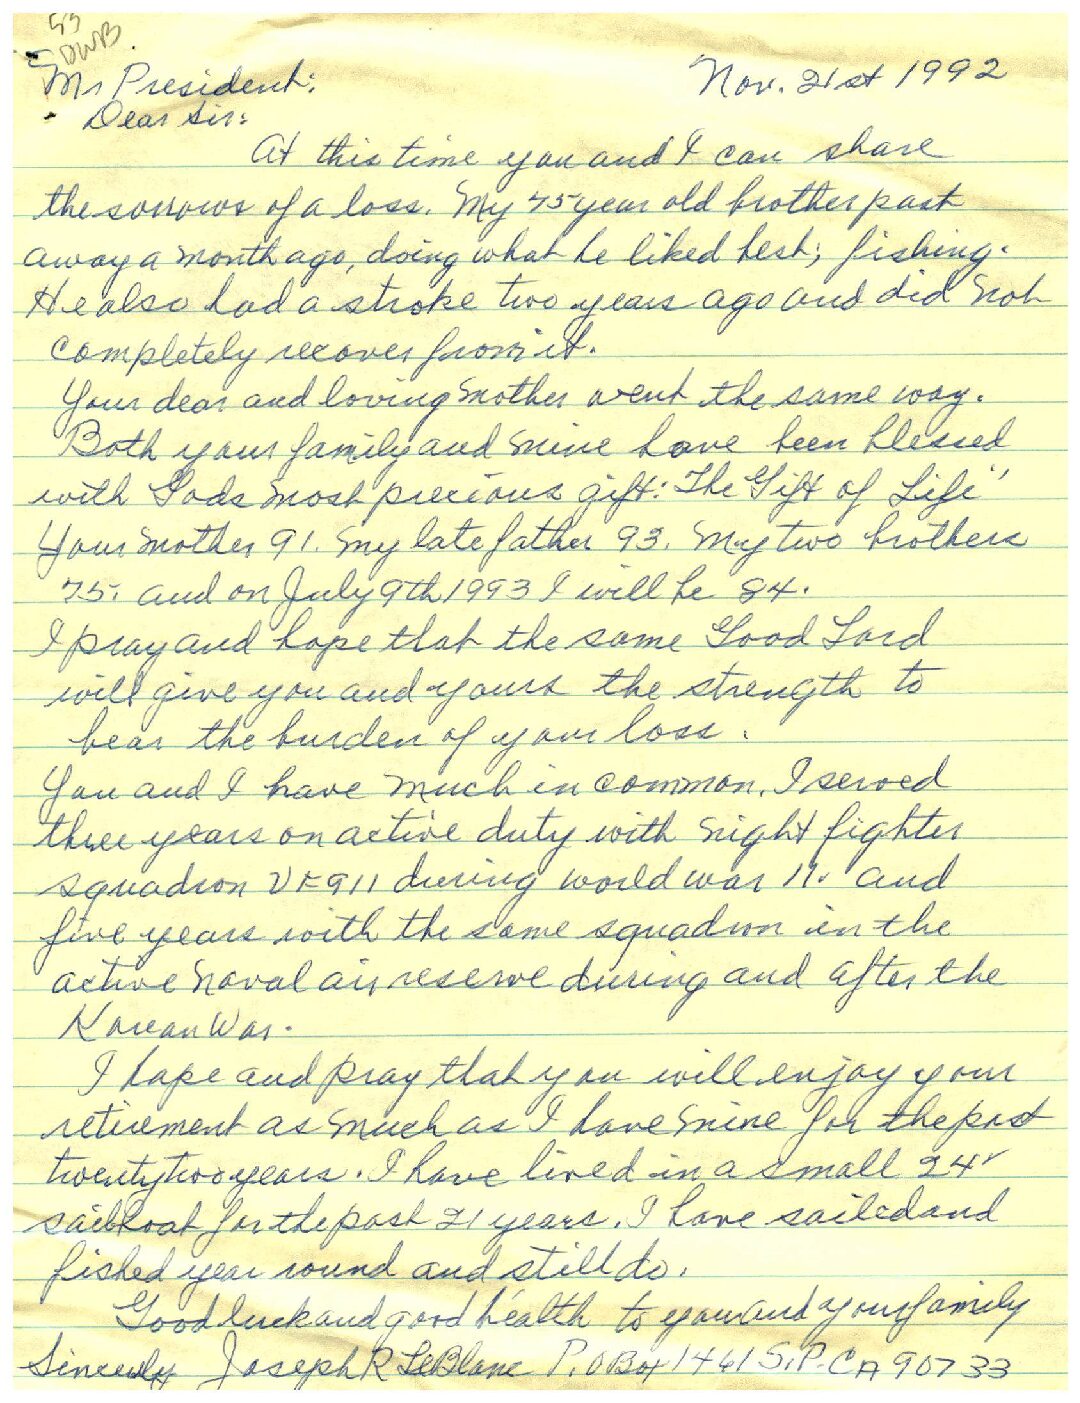 53
DWB.
Mr President: Nov. 21st 1992
Dear Sir:
At this time you and I can share
the sorrows of a loss. My 75 year old brother past
away a month ago, doing what he liked best; fishing.
He also had a stroke two years ago and did not
completely recover from it.
Your dear and loving mother went the same way.
Both your family and mine have been blessed
with Gods most precious gift: "The Gift of Life"
Your mother 91. My late father 93. My two brothers
75. and on July 9th 1993 I will be 84.
I pray and hope that the same Good Lord
will give you and yours the strength to
bear the burden of your loss.
You and I have much in common. I served
three years on active duty with night fighter
squadron VF911 during world war 11. and
five years with the same squadron in the
active naval air reserve during and after the
Korean War.
I hope and pray that you will enjoy your
retirement as much as I have mine for the past
twenty two years. I have lived in a small 24'
sailboat for the past 21 years. I have sailed and
fished year round and still do.
Good luck and good health to you and your family
Sincerely Joseph R LeBlanc P.O Box 1461 S.P. CA 90733